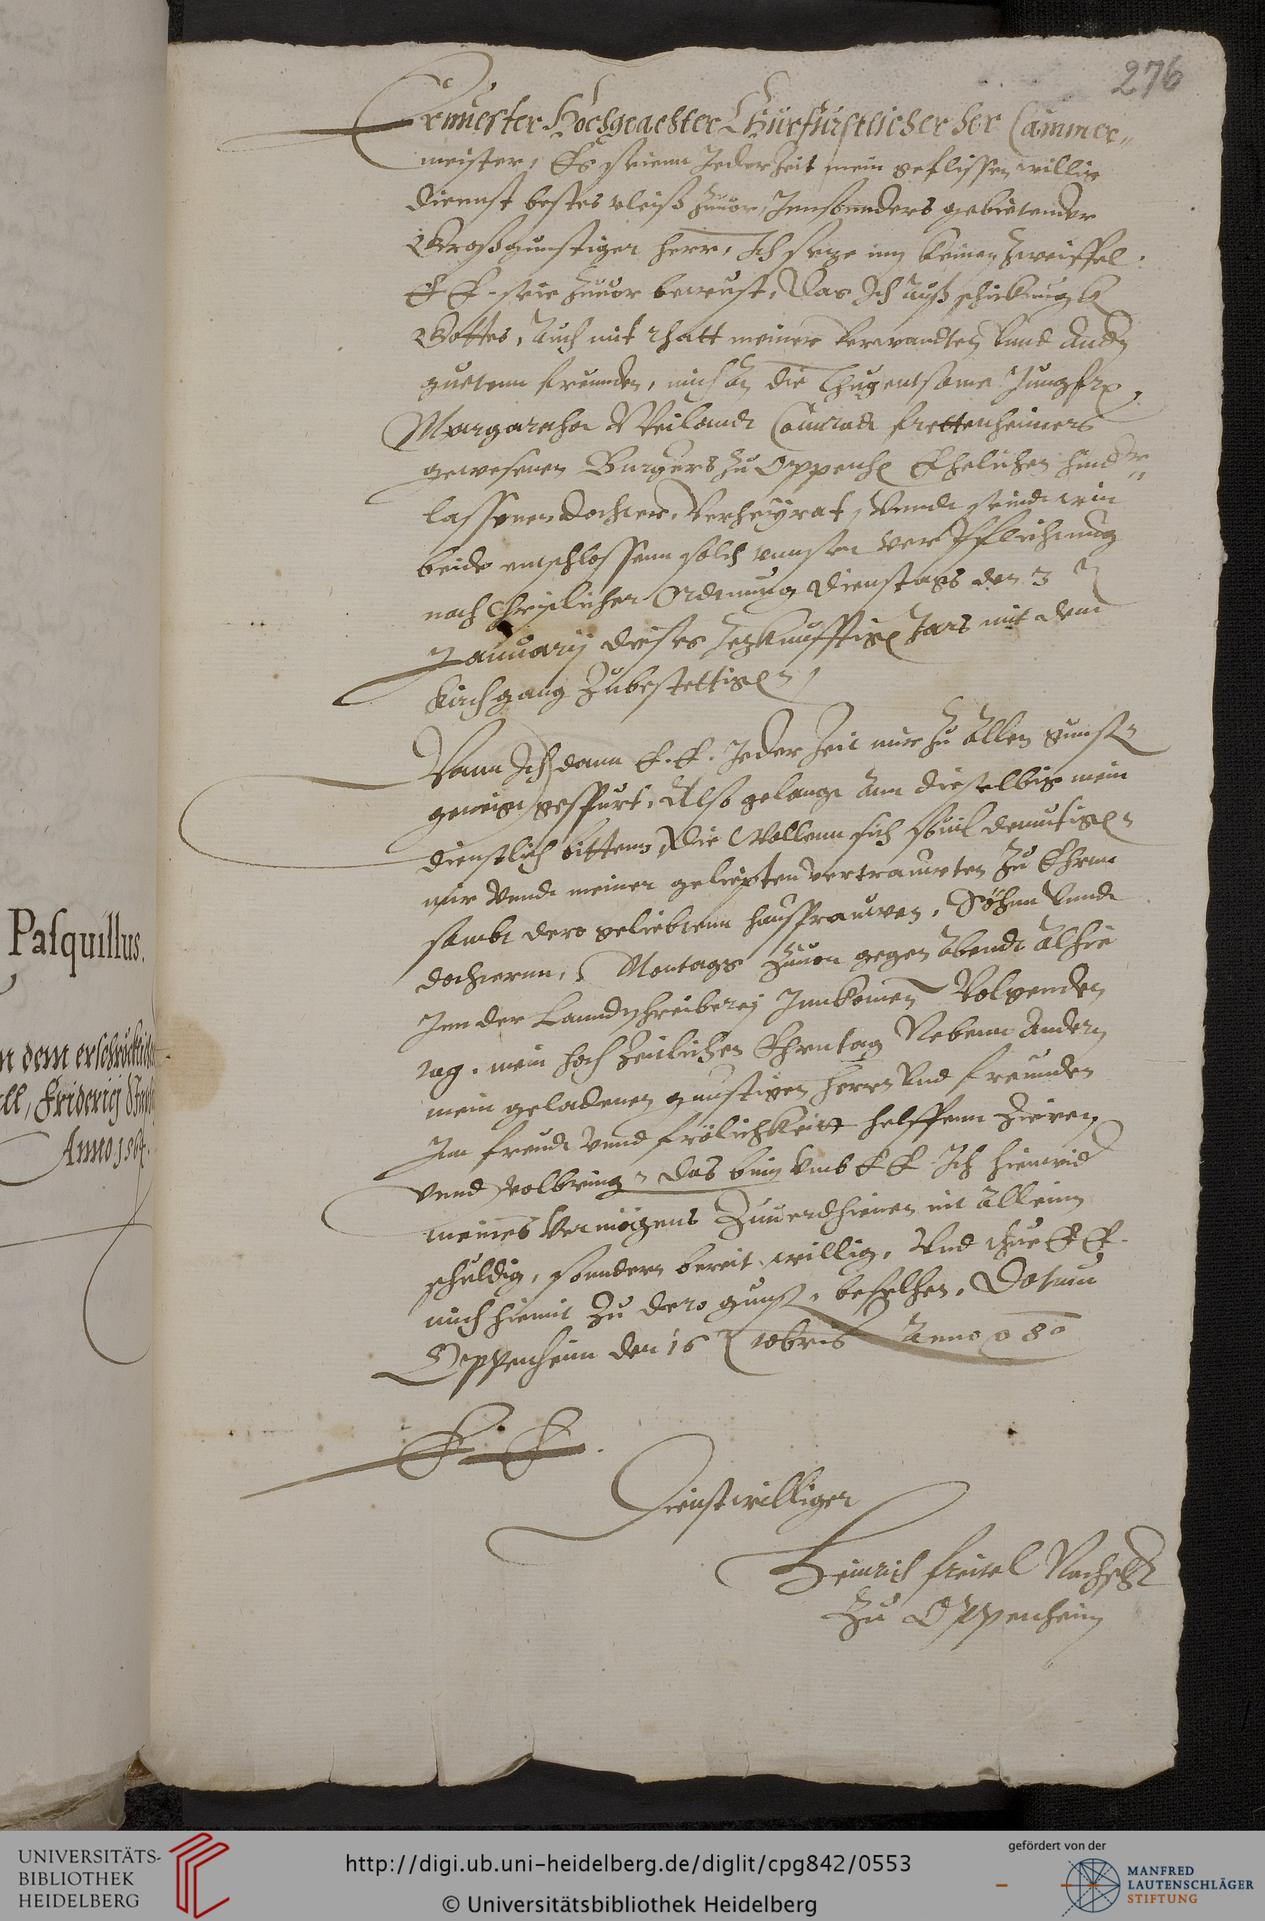 276
Ernuester Hochgeachter Churfurstlicher her Cammer„
meister, Es seienn Jederzeit mein geflissen willig
dienst bestes vleiß zuuor, Jnnsonnders gebietender
Großgunstiger herr, Jch setze inn keinen zweiffel
E E seie zuuor bewust, das Jch auß schickung
Gottes, auch mit rhatt meiner verwandten vnnd andern
guetenn freunden, mich an die thugentsame Jungfr
Margaretha Weilandt Connradt frettenheimers
gewesenen Burgers zu Oppenh Ehelichen hinder„
lassenen dochter, verheyrat, vnnd seindt wir
beide entschlossenn solch vnnser verpflichtung
nach Christlicher Ordnung dienstags den 3
Januarij dieses Jars mit dem
kirchgang zubestettigen
Wann Jch dann E. E. Jeder Zeit mir zu allen gunsten
geneigt gespurt, Also gelangt ann dieselbige mein
dienstlich bittenn, die Wollenn sich souil demutigen
mir vnnd meiner geliepten vertrauwten zu Ehrnn
sambt dero geliebtenn haußfrauwen, Söhnn vnnd
dochternn, Montags zuuor gegen abendt alhie
Jnn der Lanndtschreiberej Jnnkomen Volgenden
tag, mein hoch Zeitlichen Ehrntag Nebenn andern
mein geladenen gunstigen herrn vnd freunden
Jnn freudt vnnd frölichkeitt helffenn Zieren
vnnd volbringen das binn vmb E E Jch hinwid
meines vermögens Zuuerdhienen nit alleinn
schuldig, sonndern bereit willig, Vnd thue E E
mich hiemit zu dero gunst, befelhen, Datum
Oppenheim den 16 Xbris Anno 80
E. E.
Dienstwilliger
Heinrich
zu Oppenheim
Pasquillus.
n dem
ll, Friderici
Anno 156
UNIVERSITÄTS-
BIBLIOTHEK
HEIDELBERG
http://digi.ub.uni-heidelberg.de/diglit/cpg842/0553
© Universitätsbibliothek Heidelberg
gefördert von der
MANFRED
LAUTENSCHLÄGER
STIFTUNG